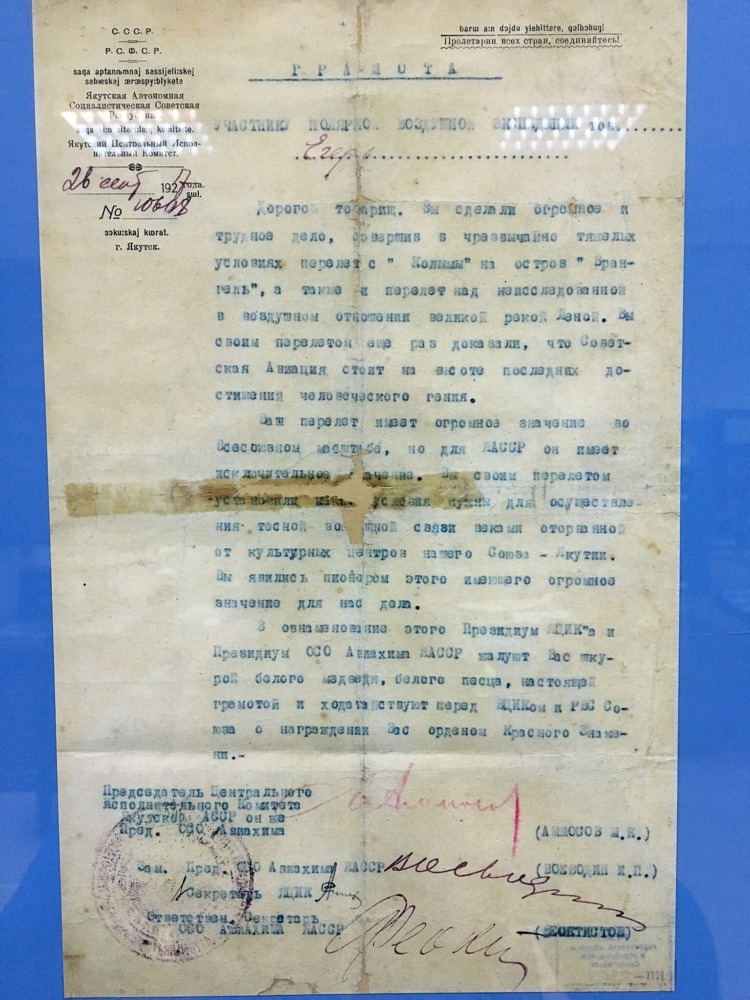 С.С.С.Р.
Р.С.Ф.С.Р.
Якутская Автономная
Социалистическая Советская
Якутский Центральный Испол-
нительный Комитет.
26 сент 1927 года.
№
г. Якутск.
Пролетарии всех стран, соединяйтесь!
ГРАМОТА
УЧАСТНИКУ ПОЛЯРНОЙ ВОЗДУШНОЙ ЭКСПЕДИЦИИ тов.
Егер
Дорогой товарищ. Вы сделали огромное и
трудное дело, совершив в чрезвычайно тяжелых
условиях перелет с " Колымы" на остров " Вран-
гель", а также и перелет над неисследованной
в воздушном отношении великой рекой Леной. Вы
своим перелетом еще раз доказали, что Совет-
ская Авиация стоит на высоте последних до-
стижений человеческого гения.
Ваш перелет имеет огромное значение во
Всесоюзном масштабе, но для ЯАССР он имеет
исключительное значение. Вы своим перелетом
установили условия нужны для осуществле-
ния тесной воздушной связи веками оторванной
от культурных центров нашего Союза - Якутии.
Вы явились пионером этого имеющего огромное
значение для нас дела.
В ознаменование этого Президиум ЯЦИК"а и
Президиум ОСО Авиахима ЯАССР жалуют Вас шку-
рой белого медведя, белого песца, настоящей
грамотой и ходатайствуют перед ВЦИКом и РВС Со-
юза о награждении Вас орденом Красного Знаме-
ни.-
Председатель Центрального
Исполнительного Комитета
Якутской АССР он же
Пред. ОСО Авиахима
(АММОСОВ М.К.)
Зам. Пред. ОСО Авиахима ЯАССР
(ВОЕВОДИН И.П.)
Секретарь ЯЦИК
Ответствен. Секретарь
ОСО Авиахима ЯАССР
(ФЕОКТИСТОВ)